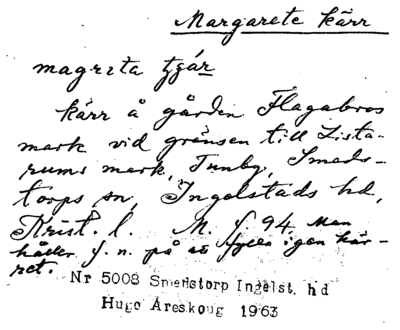 Margarete kärr
magreta tjár
kärr å gården Flagabros
mark vid gränsen till Lista-
rums mark, Tunby, Smeds-
torps sn, Ingelstads hd,
Krist. l. M. f 94. Man
håller f. n. på att fylla igen kär-
ret.
Nr 5008 Smedstorp Ingelst. hd
Hugo Areskoug 1963